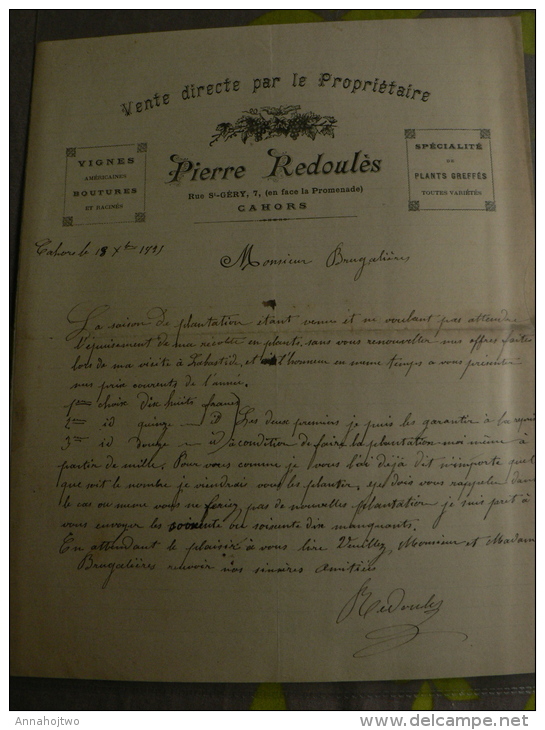 Vente directe par le Propriétaire
VIGNES
AMÉRICAINES
BOUTURES
ET RACINÉS
Pierre Redoulès
Rue St-GÉRY, 7, (en face la Promenade)
CAHORS
SPÉCIALITÉ
DE
PLANTS GREFFÉS
TOUTES VARIÉTÉS
Cahors le 18 Xbre
Monsieur Brugalières
La saison de plantation étant venue et ne voulant pas attendre
l'épuisement de ma récolte en plants, sans vous renouveller mes offres faites
lors de ma visite à Labastide, et l'honneur en même temps a vous présenter
mes prix courents de l'année.
1er choix dix huits francs
2me id quinze id Les deux premiers je puis les garantir à la reprise
3me id douze id à condition de faire la plantation moi même à
partir de mille. Pour vous comme je vous l'ai déjà dit n'importe quel
que soit le nombre je viendrais vous les planter, je dois vous rappeler dans
le cas ou même vous ne feriez pas de nouvelles plantation je suis prêt à
vous envoyer les soixante ou soixante dix manquants.
En attendant le plaisir à vous lire Veuillez, Monsieur et Madame
Brugalières recevoir nos sincères amitiés
Redoulès
Annahojtwo
www.delcampe.net